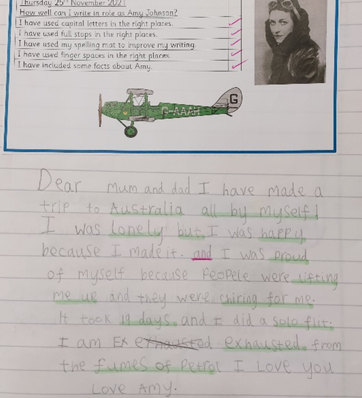 Thursday 25th November 2021
How well can I write in role as Amy Johnson?
I have used capital letters in the right places.
I have used full stops in the right places.
I have used my spelling mat to improve my writing.
I have used finger spaces in the right places.
I have included some facts about Amy.
G
G-AAAH
Dear Mum and dad I have made a
trip to Australia all by myself!
I was lonely but I was happy
because I made it. and I was proud
of myself because Peopele were lifting
me up and they were chiring for me.
It took 19 days. and I did a solo flit.
I am Ex exhausted exhausted. from
the fumes of Petrol I Love you
Love Amy.